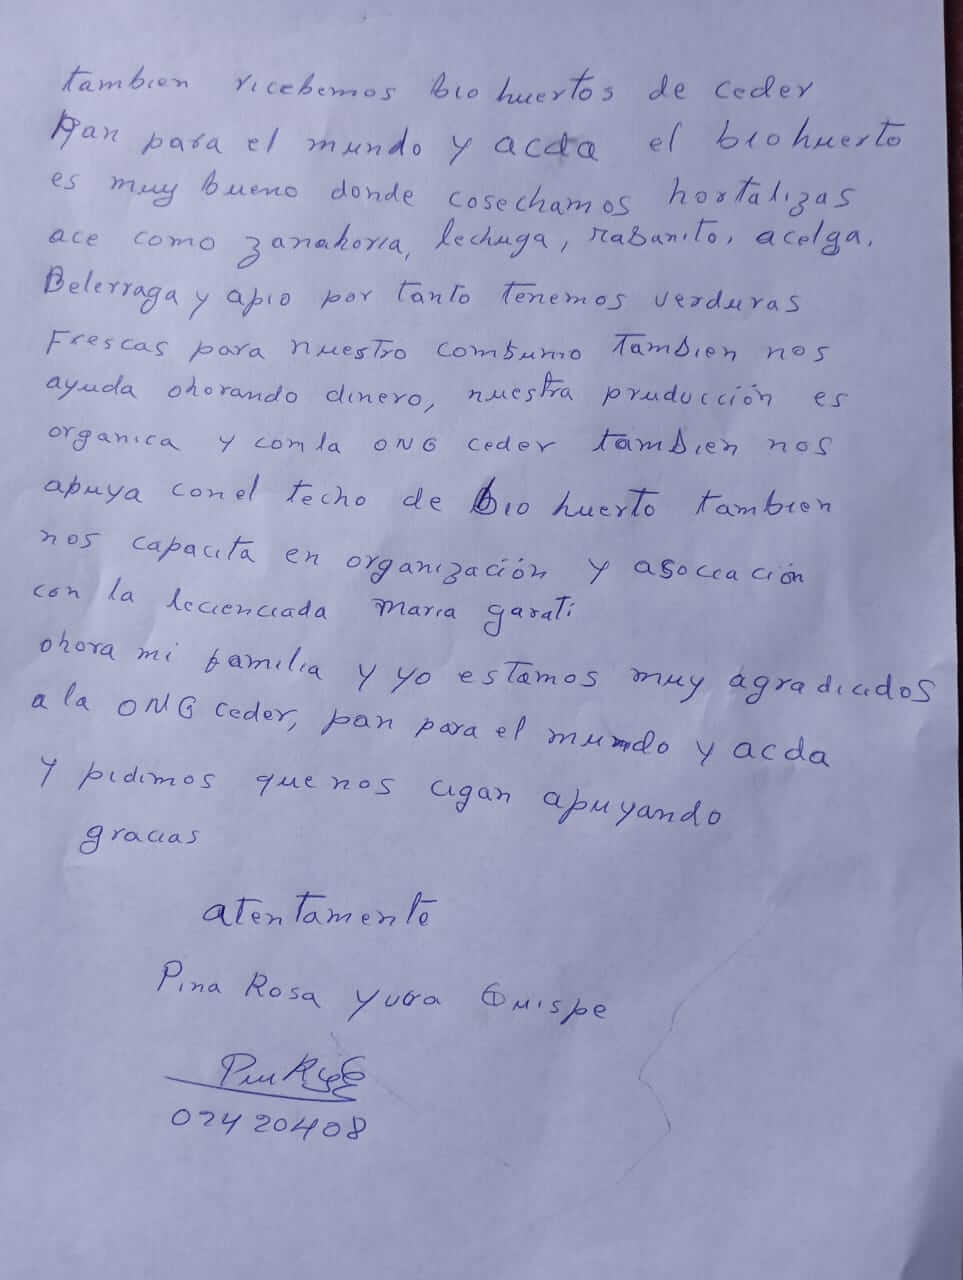 tambien ricebemos bio huertos de ceder
Pan para el mundo y acda el bio huerto
es muy bueno donde cosechamos hortalizas
ace como zanahoria, lechuga, rabanito, acelga,
Belerraga y apio por tanto tenemos verduras
Frescas para nuestro combumo tambien nos
ayuda ohorando dinero, nuestra pruducción es
organica y con la ONG ceder tambien nos
apuya con el techo de bio huerto tambien
nos capacita en organización y asociación
con la lecienciada maria garati
ohora mi familia y yo estamos muy agradicidos
a la ONG ceder, pan para el mundo y acda
y pidimos que nos cigan apuyando
gracias
atentamente
Pina Rosa yura Quispe
02420408